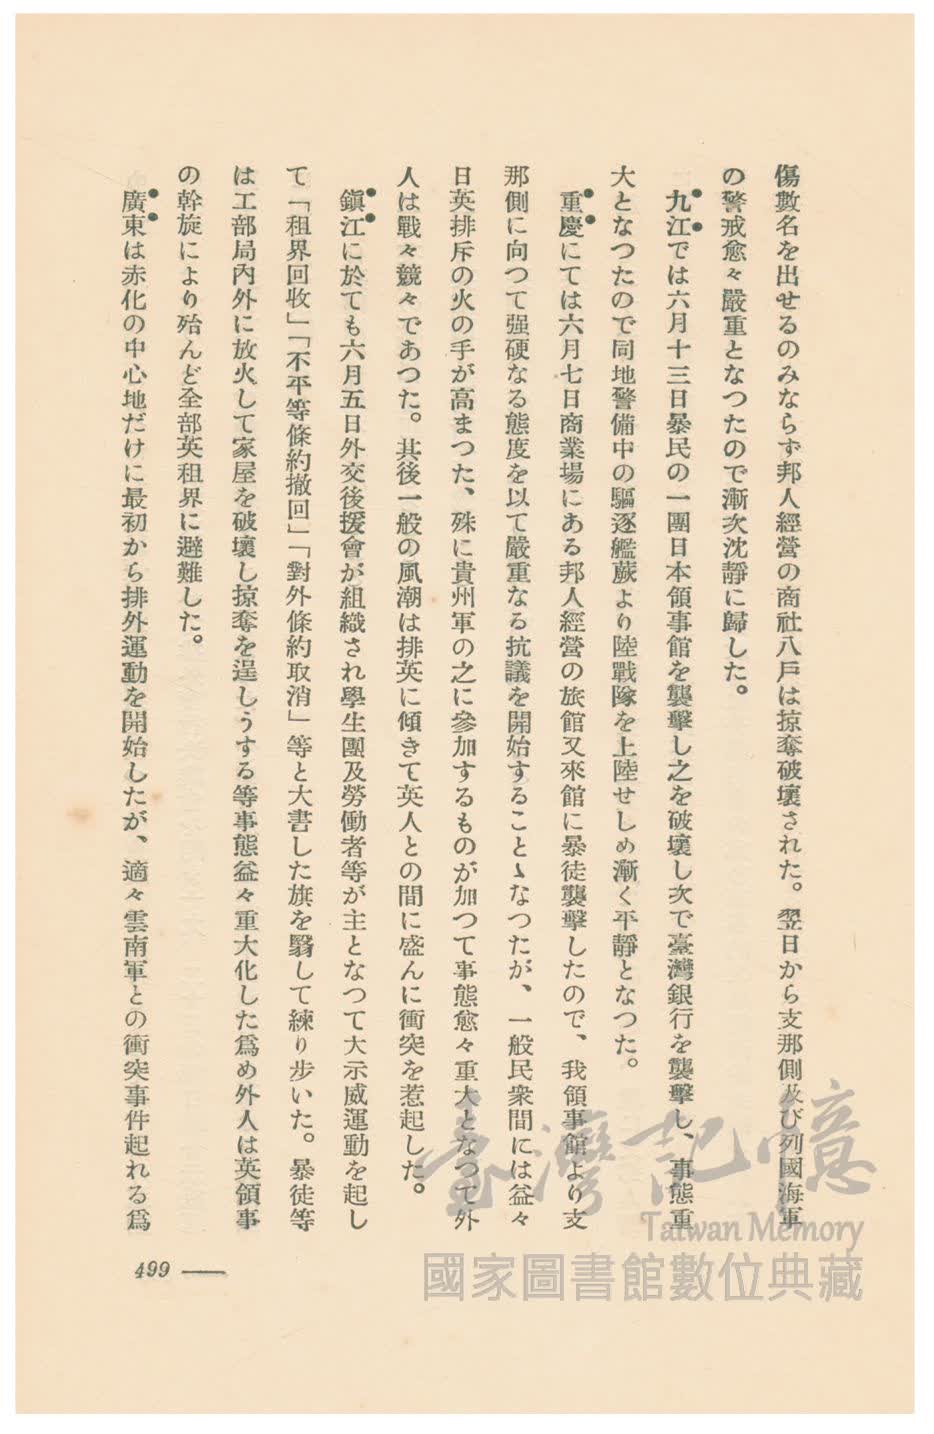 傷數名を出せるのみならず邦人經營の商社八戶は掠奪破壞された。翌日から支那側及び列國海軍
の警戒愈々嚴重となつたので漸次沈靜に歸した。
九江では六月十三日暴民の一團日本領事館を襲擊し之を破壞し次で臺灣銀行を襲擊し、事態重
大となつたので同地警備中の驅逐艦蕨より陸戰隊を上陸せしめ漸く平靜となつた。
重慶にては六月七日商業場にある邦人經營の旅館又來館に暴徒襲擊したので、我領事館より支
那側に向つて强硬なる態度を以て嚴重なる抗議を開始することゝなつたが、一般民衆間には益々
日英排斥の火の手が高まつた、殊に貴州軍の之に參加するものが加つて事態愈々重大となつて外
人は戰々競々であつた。其後一般の風潮は排英に傾きて英人との間に盛んに衝突を惹起した。
鎭江に於ても六月五日外交後援會が組織され學生團及勞働者等が主となつて大示威運動を起し
て「租界回收」「不平等條約撤回」「對外條約取消」等と大書した旗を翳して練り步いた。暴徒等
は工部局內外に放火して家屋を破壞し掠奪を逞しうする等事態益々重大化した爲め外人は英領事
の幹旋により殆んど全部英租界に避難した。
廣東は赤化の中心地だけに最初から排外運動を開始したが、適々雲南軍との衝突事件起れる爲
499
臺灣記憶
Taiwan Memory
國家圖書館數位典藏